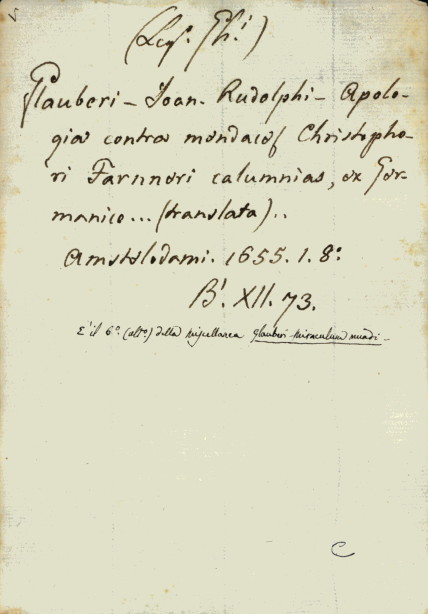 (Leg. Gh.i)
Glauberi - Joan. Rudolphi - Apolo-
gia contra mendaces Christopho-
ri Farnneri calumnias, ex Ger-
manico... (translata)..
Amstelodami. 1655. 1. 8.º
B.i XII. 73.
E' il 6.º (ult.º) della Miscellanea Glauberi-Miraculum mundi-
C